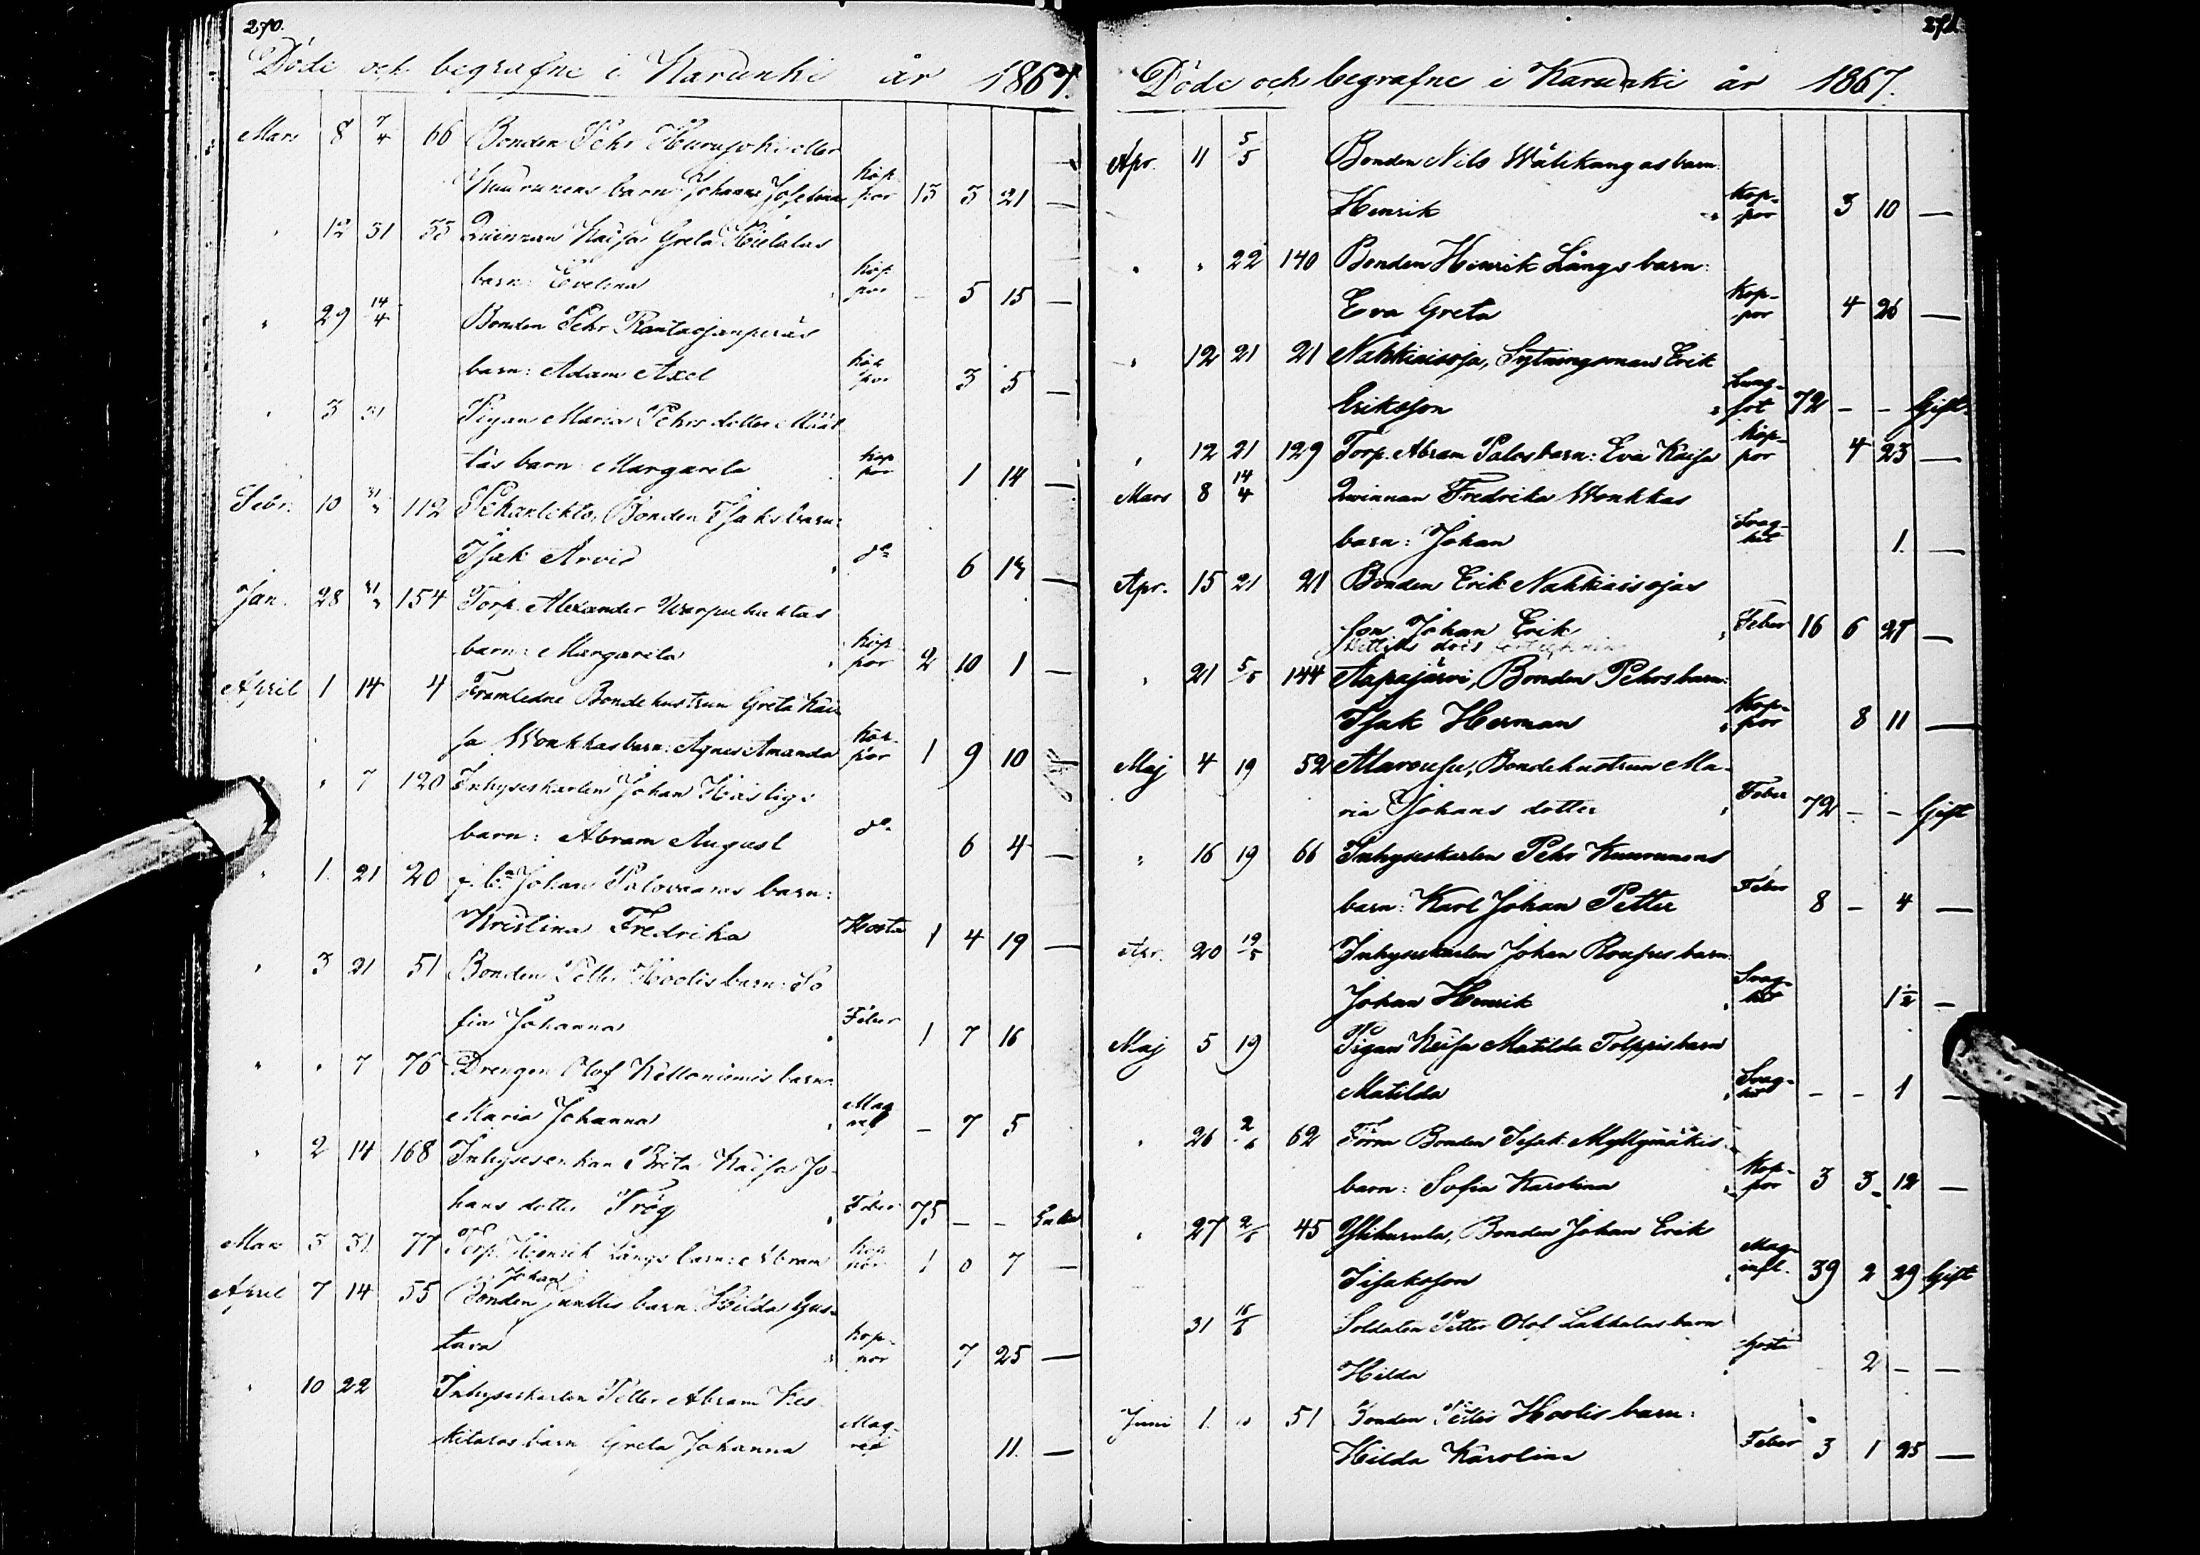 270.
Döde och begrafne i Karunki år 1867.
Mars 8 7/4 66 Bonden Pehr eller
Kuurunens barn: Johanna Josefina Kop-por 13 3 21 —
" 12 31 33 Quinnan Kaisa Greta Hietalas
barn: Evelina Kop-por - 5 15 —
" 29 14/4 Bonden Pehr Rantaojanperäs
barn: Adam Axel Kop-por 3 5 —
" 3 31 Pigan Maria Pehrsdotter Määt-
täs barn: Margareta Kop-por 1 14 —
Febr. 10 31/3 112 Bonden Isaks barn:
Isak Arvid do 6 13 —
Jan. 28 31/3 154 Torp. Alexander
barn: Margareta Kop-por 2 10 1 —
April 1 14 4 Framledne Bondehustrun Greta Kai-
sa Wonkkas barn: Agnes Amanda Kop-por 1 9 10 —
" " 7 120 Inhyseskarlen Johan Hästigs
barn: Abram August do 6 4 —
" 1. 21 20 f. b. Johan Palovaaras barn:
Kristina Fredrika Hosta 1 4 19 —
" 3 21 51 Bonden Petter Hoolis barn: So-
fia Johanna Feber 1 7 16
" " 7 76 Drengen Olof Kellaniemis barn:
Maria Johanna Mag-ref - 7 5
" 2 14 168 Inhysesenkan Brita Kaisa Jo-
hans dotter Frög Feber 75 - - Enka
Mars 3 31 77 Torp. Henrik Långs barn: Abram Kop-por 1 0 7 —
Johan
April 7 14 55 Bonden Junttis barn: Hilda Gus-
tava Kop-por 7 25 —
" 10 22 Inhyseskarlen Petter Abram Kes-
kitalos barn: Greta Johanna Mag-ref 11. —
271.
Döde och begrafne i Karunki år 1867.
Apr. 11 5/5 Bonden Nils Wälikangas barn:
Henrik Kop-por 3 10 —
" " 22 140 Bonden Henrik Långs barn:
Eva Greta Kop-por 4 26 —
" 12 21 21 Nahkiaisoja, Sytningsman Erik
Eriksson Lung-sot 72 - - Gift.
" 12 21 129 Torp. Abram Palos barn: Eva Kaisa Kop-por 4 23 —
Mars 8 14/4 Qvinnan Fredrika Wonkkas
barn: Johan Svag-het 1. —
Apr. 15 21 21 Bonden Erik Nahkiaisojas
son Johan Erik Feber 16 6 27 —
" 21 5/5 144 Aapajärvi, Bonden Pehrs barn:
Isak Herman Kop-por 8 11 —
Maj 4 19 52 Alarousu, Bondehustrun Ma-
ria Johans dotter Feber 72 - - Gift
" 16 19 66 Inhyseskarlen Pehr Kuurunens
barn: Karl Johan Petter Feber 8 - 4 —
Apr. 20 19/5 Inhyseskarlen Johan Rousus barn:
Johan Henrik Svag-het 1½ —
Maj 5 19 Pigan Kaisa Matilda Tolppis barn
Matilda Svag-het - - 1 —
" 26 2/6 62 Förm Bonden Isak Myllymäkis
barn: Sofia Karolina Kop-por 3 3 12 —
" 27 2/6 45 Ylikurula, Bonden Johan Erik
Isaksson Mag-infl. 39 2 29 Gift
31 16/6 Soldaten Petter Olof Lakkalas barn
Hilda Hosta 2 - —
Juni 1. 51 Bonden Petter Hoolis barn:
Hilda Karolina Feber 3 1 25 —